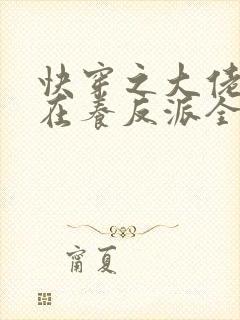 快穿之大佬
在养反派全
甯夏